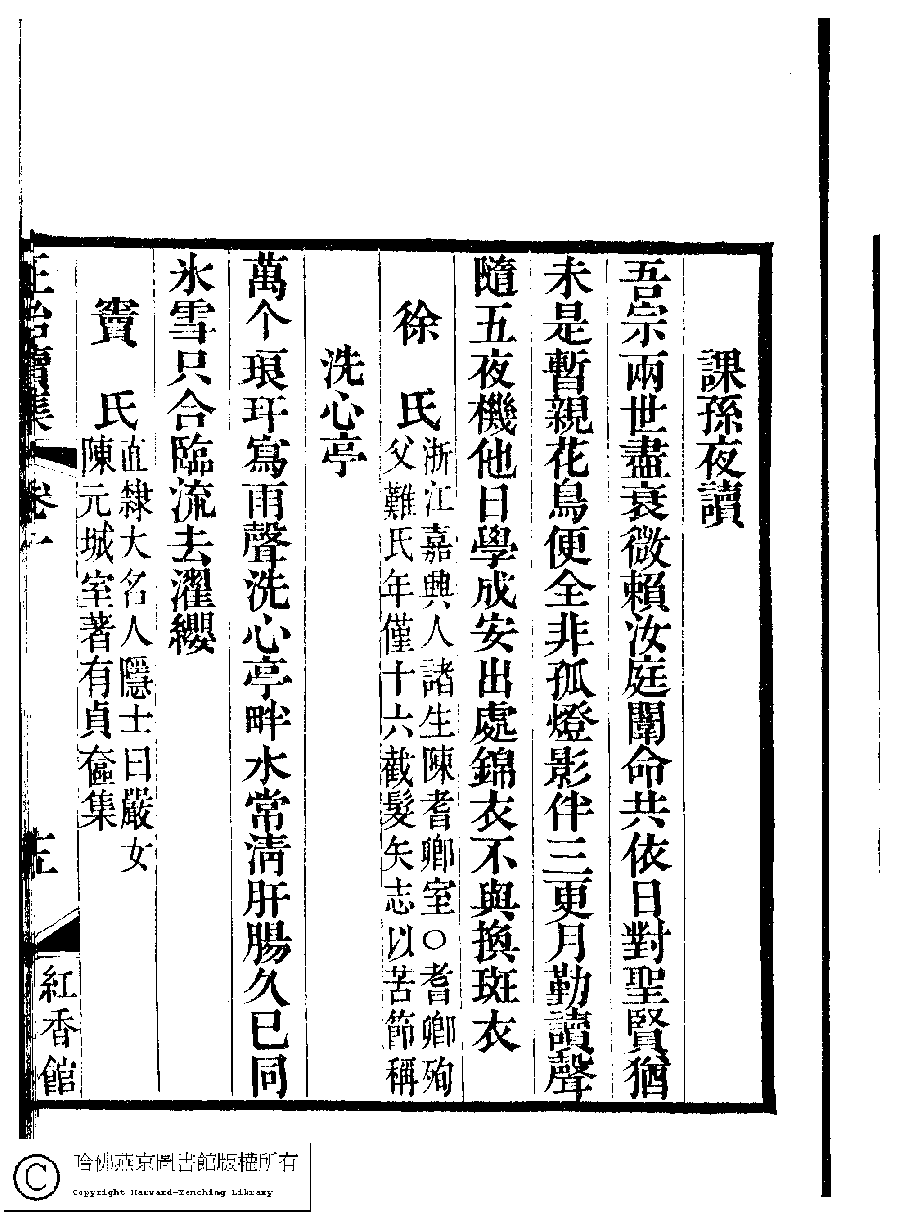 課孫夜讀
吾宗兩世盡衰微賴汝庭闈命共依日對聖賢猶
未是暫親花鳥便全非孤燈影伴三更月勤讀聲
隨五夜機他日學成安出處錦衣不與換斑衣
徐　氏
浙江嘉興人諸生陳耆卿室○耆卿殉
父難氏年僅十六截髮矢志以苦節稱
洗心亭
萬个琅玕寫雨聲洗心亭畔水常清肝腸久已同
氷雪只合臨流去濯纓
竇　氏
直隸大名人隱士曰嚴女
陳元城室著有貞奩集
紅香館
哈佛燕京圖書館版權所有
Copyright Harvard-Yenching Library